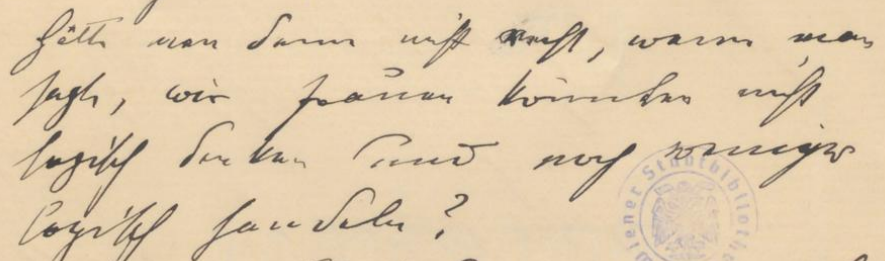 Hätte man dann nicht recht, wenn man
sagte, wir Frauen könnten nicht
logisch denken und noch weniger
logisch handeln?
Wiener Stadtbibliothek